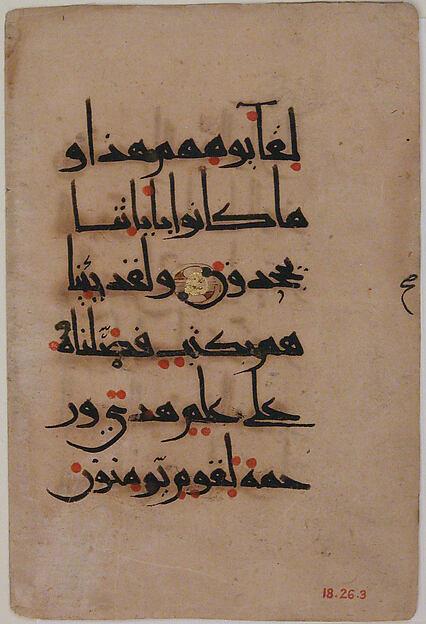 لقآ يومهم هذا و
ما كانوا باياتنا
يجحدون ولقد جئنا
هم بكتب فصّلناه
على علم هدى ور
حمة لقوم يؤمنون
18.26.3